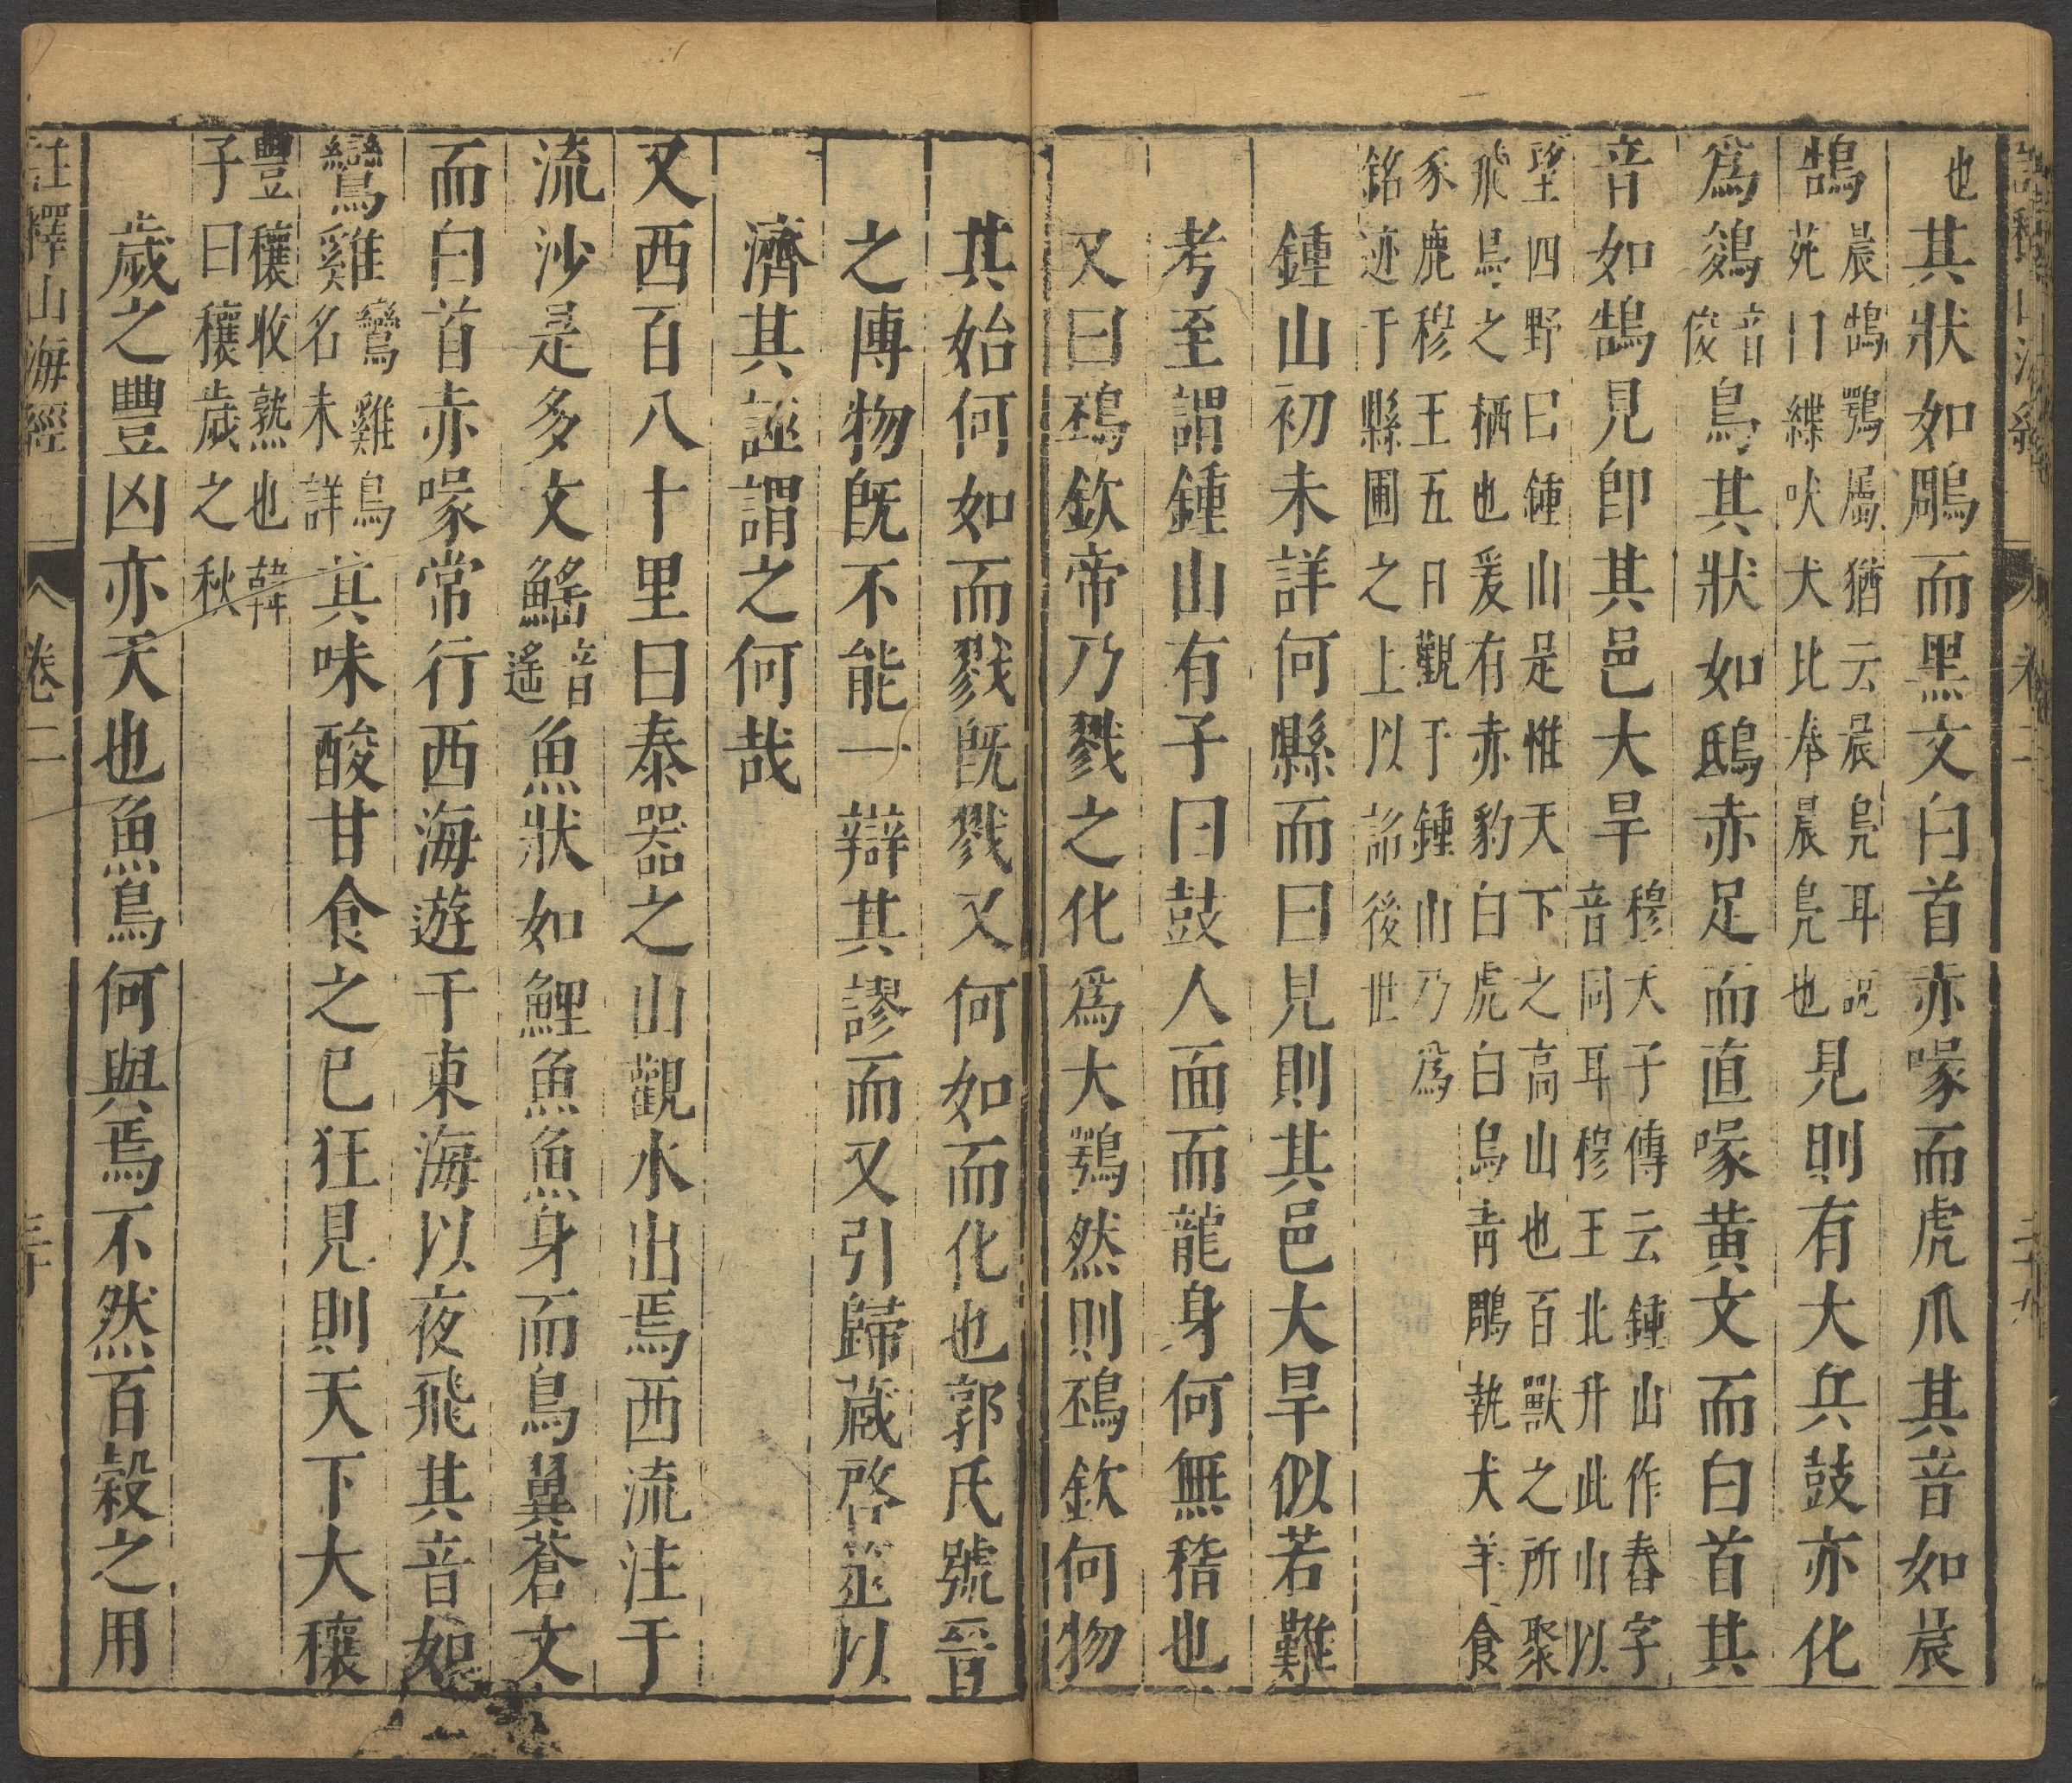 也其狀如鵰而黑文白首赤喙而虎爪其音如晨
鵠
晨鵠鶚屬猶云晨鳧耳說
苑曰緤吠犬比奉晨鳧也
見則有大兵鼓亦化
為鵕
音
俊
鳥其狀如鴟赤足而直喙黃文而白首其
音如鵠見卽其邑大旱
穆天子傳云鍾山作舂字
音同耳穆王北升此山以
望四野曰鍾山是惟天下之高山也百獸之所聚
飛鳥之栖也爰有赤豹白虎白鳥青鵰執犬羊食
豕鹿穆王五日觀于鍾山乃為
銘迹于縣圃之上以詔後世
鍾山初未詳何縣而曰見則其邑大旱似若難
考至謂鍾山有子曰鼓人面而龍身何無稽也
又曰䲹欽帝乃戮之化為大鶚然則䲹欽何物
其始何如而戮既戮又何如而化也郭氏號晉
之博物既不能一辯其謬而又引歸藏啓筮以
濟其誣謂之何哉
又西百八十里曰泰器之山觀水出焉西流注于
流沙是多文鰩
音
遙
魚狀如鯉魚魚身而鳥翼蒼文
而白首赤喙常行西海遊于東海以夜飛其音如
鸞雞
鸞雞鳥
名未詳
其味酸甘食之已狂見則天下大穰
豐穰收熟也韓
子曰穰歲之秋
歲之豐凶亦天也魚鳥何與焉不然百穀之用
註釋山海經 卷二 三十